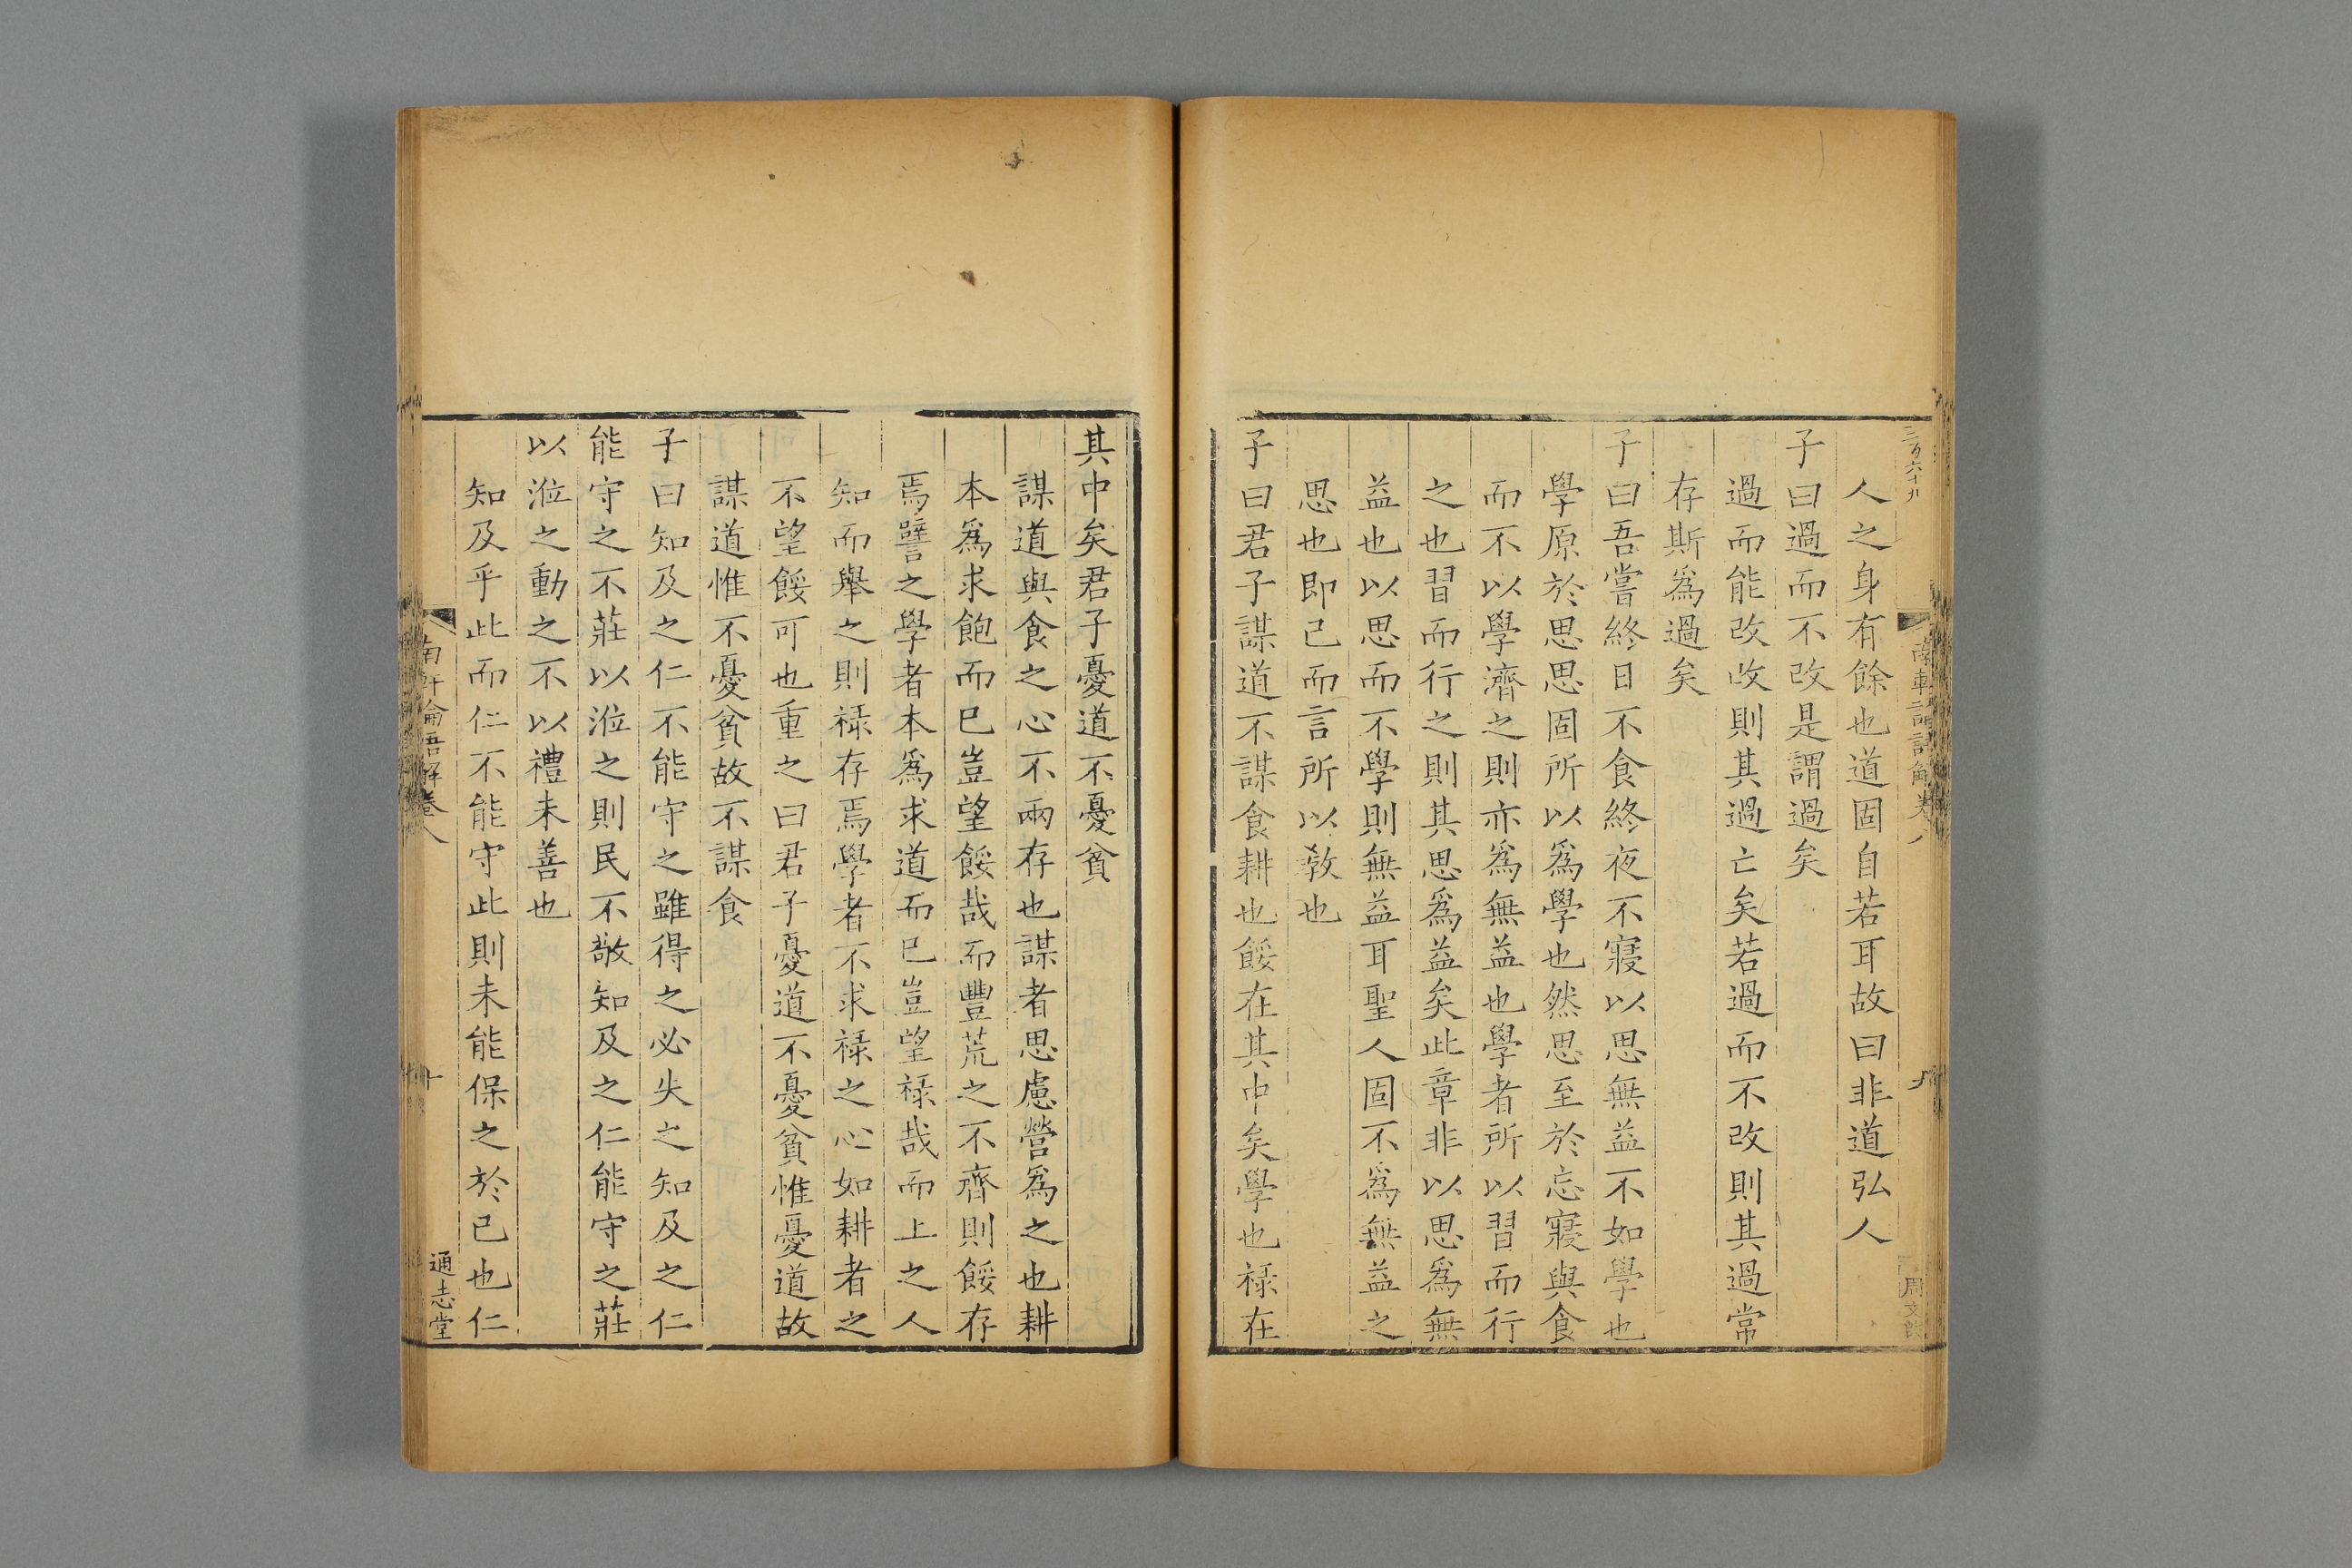 三百六十九
人之身有餘也道固自若耳故曰非道弘人
子曰過而不改是謂過矣
過而能改改則其過亡矣若過而不改則其過常
存斯爲過矣
子曰吾嘗終日不食終夜不寢以思無益不如學也
學原於思思固所以爲學也然思至於忘寢與食
而不以學濟之則亦爲無益也學者所以習而行
之也習而行之則其思爲益矣此章非以思爲無
益也以思而不學則無益耳聖人固不爲無益之
思也即己而言所以敎也
子曰君子謀道不謀食耕也餒在其中矣學也祿在
其中矣君子憂道不憂貧
謀道與食之心不兩存也謀者思慮營爲之也耕
本爲求飽而已豈望餒哉而豐荒之不齊則餒存
焉譬之學者本爲求道而已豈望祿哉而上之人
知而舉之則祿存焉學者不求祿之心如耕者之
不望餒可也重之曰君子憂道不憂貧惟憂道故
謀道惟不憂貧故不謀食
子曰知及之仁不能守之雖得之必失之知及之仁
能守之不莊以涖之則民不敬知及之仁能守之莊
以涖之動之不以禮未善也
知及乎此而仁不能守此則未能保之於己也仁
南軒論語解卷八
十
通志堂